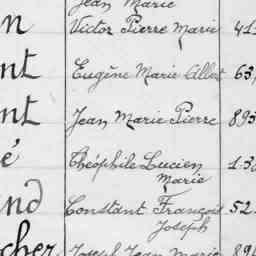 Jean Marie
n Victor Pierre Marie 41
nt Eugène Marie Albert 63
nt Jean Marie Pierre 895
é Théophile Lucien 1.3
Marie
nd Constant François 52
Joseph
cher Joseph Jean Marie 89